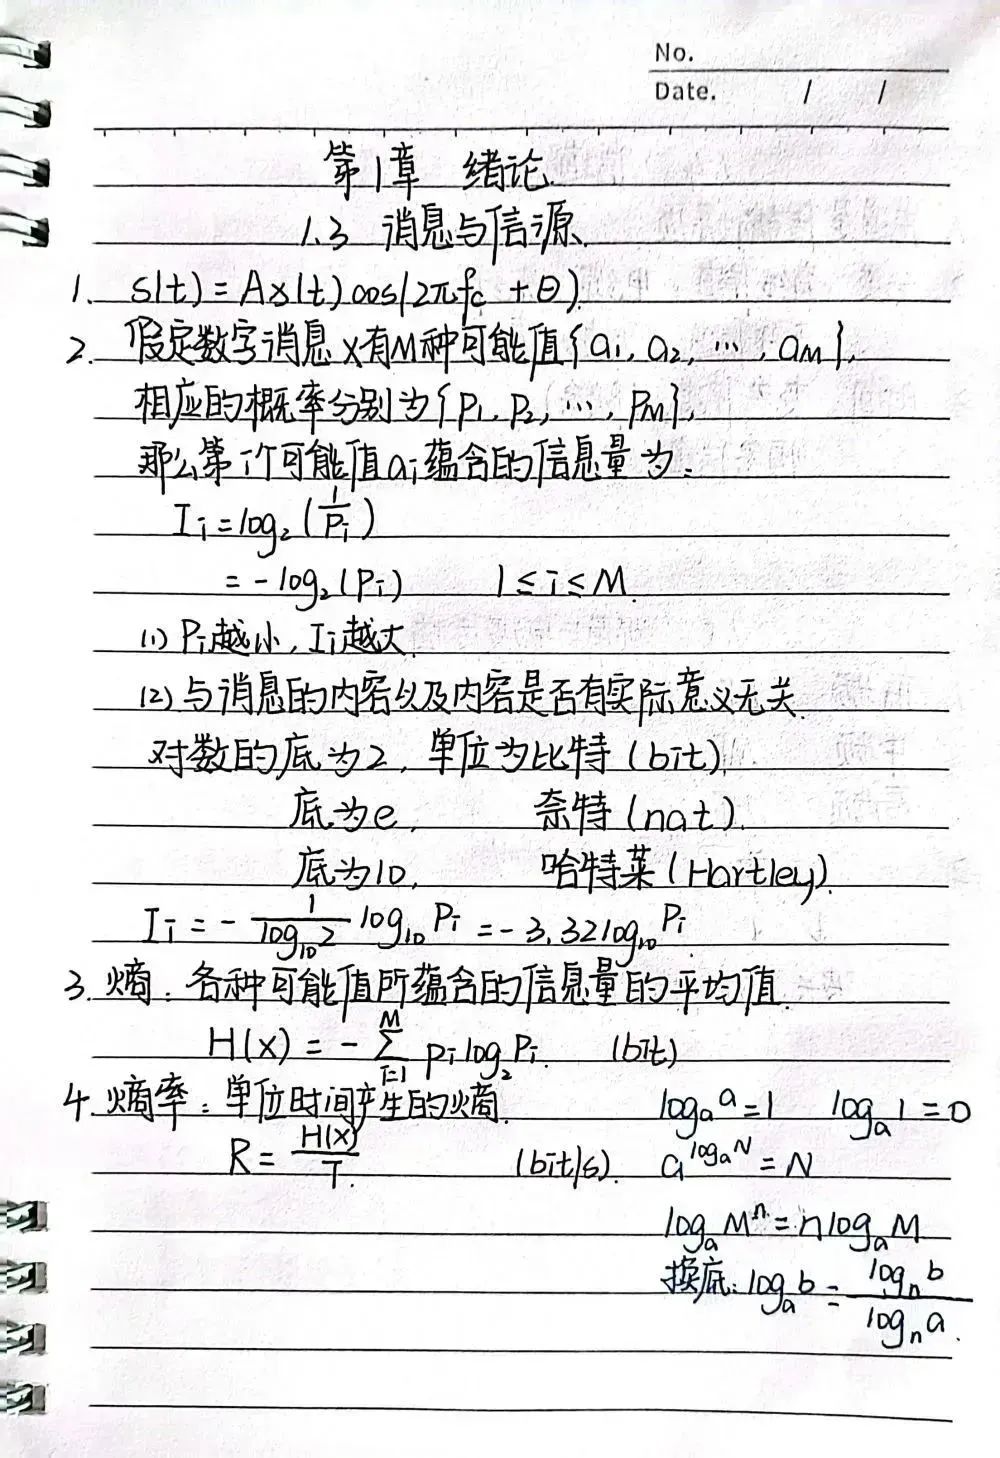 No.
Date. / /
第1章 绪论.
1.3 消息与信源.
1. s(t) = Ax(t) cos(2πfc + θ).
2. 假定数字消息X有M种可能值{a₁, a₂, ···, a_M},
相应的概率分别为{p₁, p₂, ···, p_M},
那么第i个可能值aᵢ蕴含的信息量为:
Iᵢ = log₂(1/Pᵢ)
= -log₂(Pᵢ) 1 ≤ i ≤ M.
(1) Pᵢ越小, Iᵢ越大.
(2) 与消息的内容以及内容是否有实际意义无关.
对数的底为2, 单位为比特 (bit),
底为e, 奈特 (nat).
底为10, 哈特莱 (Hartley).
Iᵢ = - 1/log₁₀2 log₁₀Pᵢ = -3.32log₁₀Pᵢ
3. 熵: 各种可能值所蕴含的信息量的平均值.
H(x) = - ∑_{i=1}^{M} pᵢ log₂ Pᵢ. (bit)
4. 熵率: 单位时间产生的熵.
R = H(x)/T. (bit/s).
logₐa = 1 logₐ1 = 0
a^{logₐN} = N
logₐMⁿ = n logₐM
换底: logₐb = logₙb / logₙa.